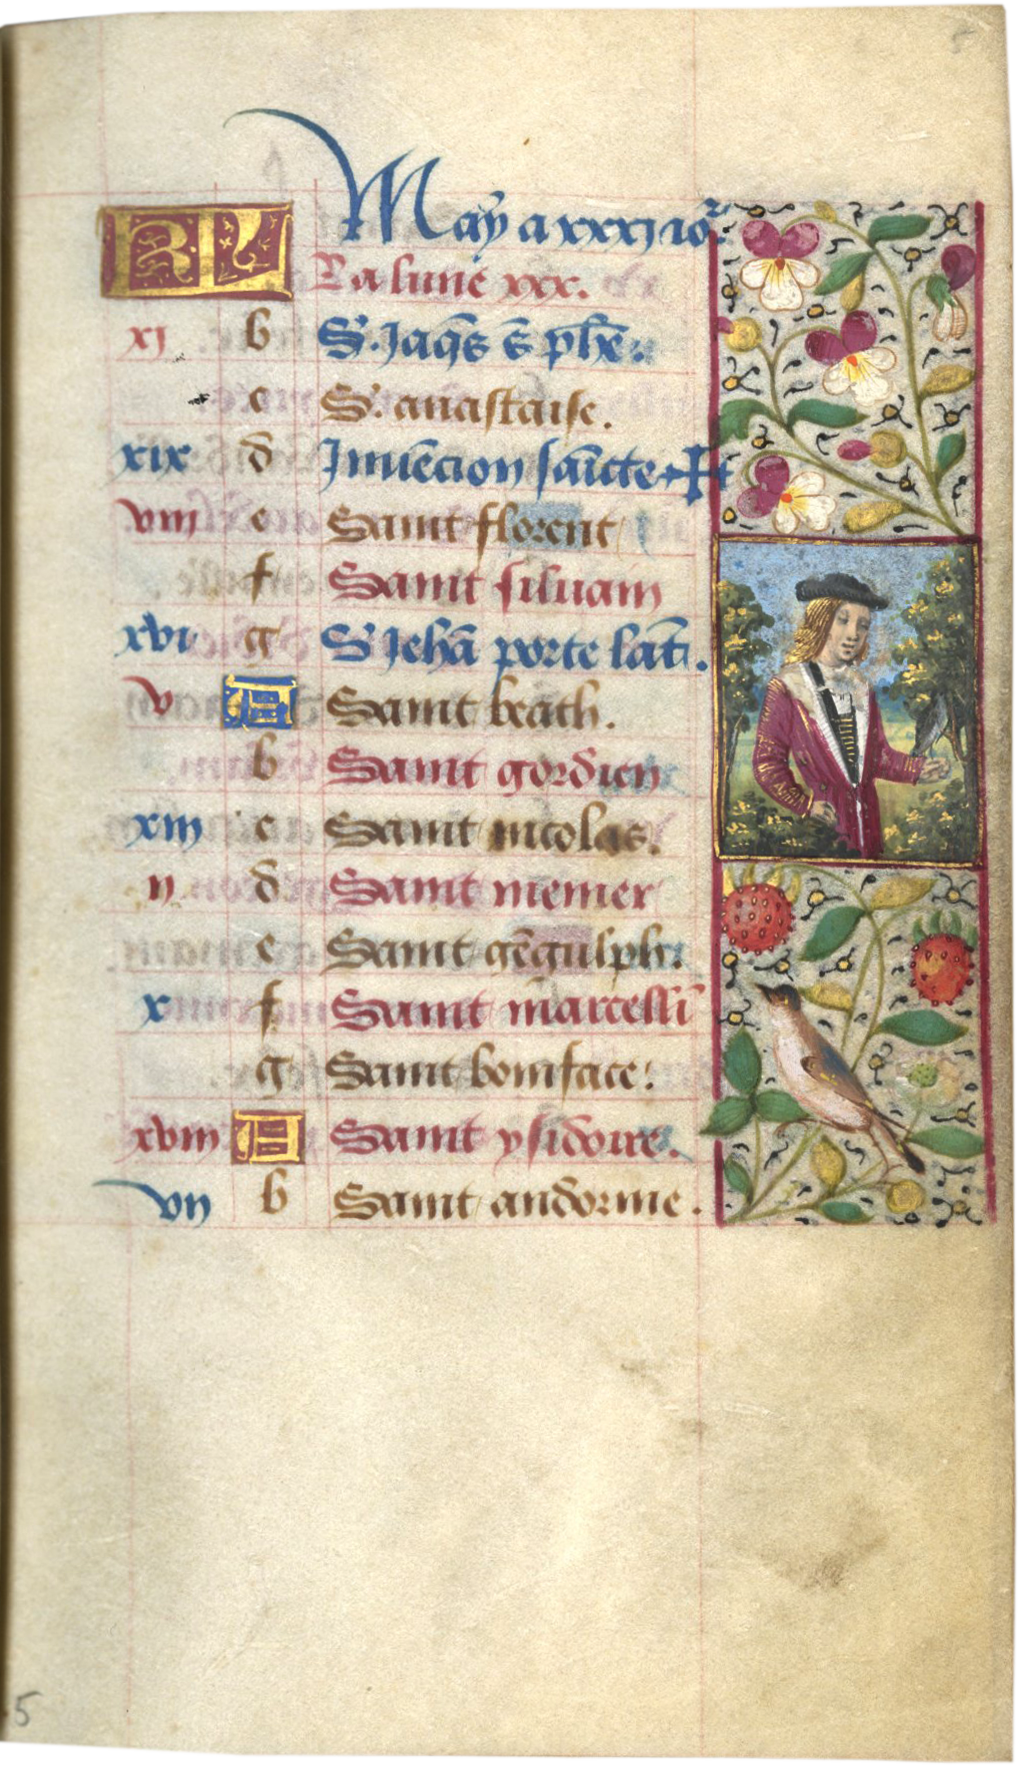 May a xxxi ior̃
KL La lune xxx.
xi b S. Jaq̃s s̃ phẽ.
c S. anastaise.
xix d Inuẽcion sãcte ✝
viii e Saint florent
f Saint siluain
xvi g S Jehã porte latĩ.
v A Saint beath.
b Saint gordien
xiii c Saint nicolas.
ii d Saint memer
e Saint gẽgulph.
x f Saint marcelli᷑
g Saint boniface.
xviii A Saint ysidoire.
vii b Saint andorme.
5
5